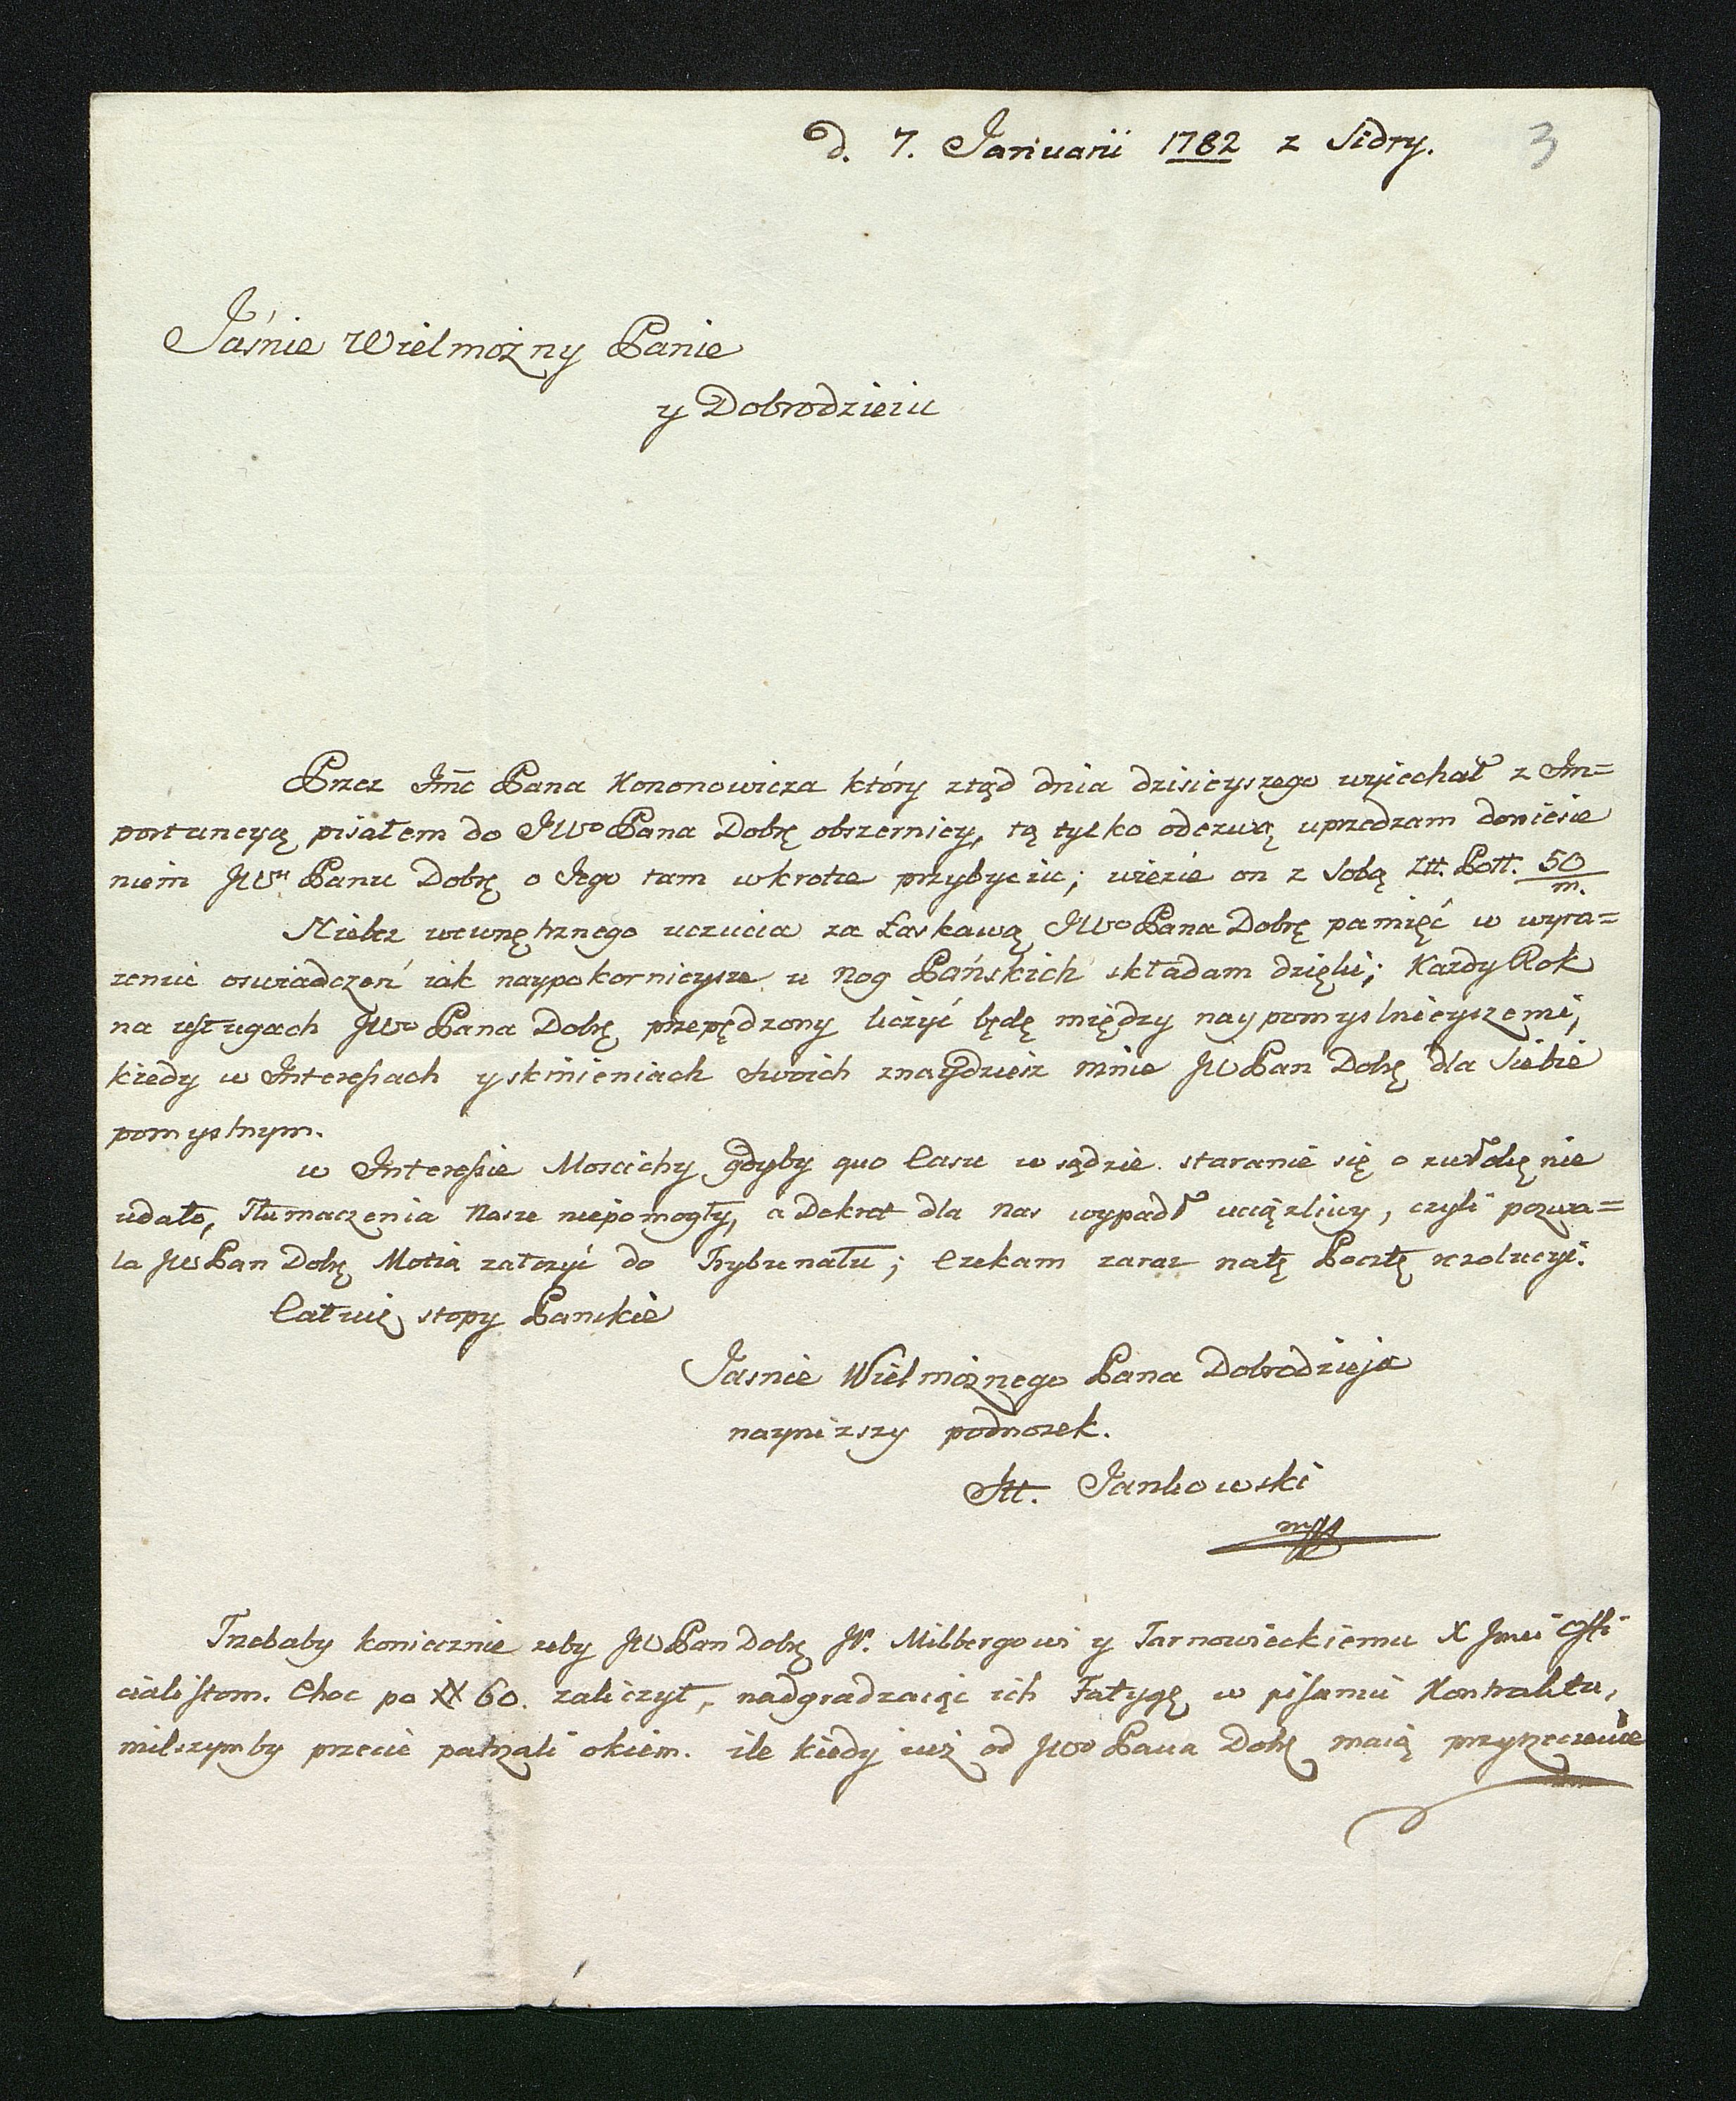 d. 7. Januarii 1782 z Sidry. 3
Jaśnie Wielmożny Panie
y Dobrodzieiu
Przez Jmć Pana Kononowicza który ztąd dnia dzisieyszego wyiechał z Im=
portancyą pisałem do JWo Pana Dobrę obszerniey, tą tylko odezwą uprzedzam doniesie
niem JWu Panu Dobrę o Jego tam wkrotce przybyciu; wiezie on z Sobą Ztt. Poll. 50/m.
Nielcz wewnętrznego uczucia za Łaskawą JWo Pana Dobrę pamięć w wyra=
zeniu oswiadczeń iak naypokornieysze u Nog Pańskich składam dzięki; Kazdy Rok
na usługach JWo Pana Dobrę przepędzony liczyć będę między naypomyslnieyszemi,
kiedy w Interessach y skinieniach Swoich znaydziesz mnie JW Pan Dobrę dla Siebie
pomyslnym.
w Interessie Moscichy gdyby quo Casu w sądzie staranie się o zwłokę nie
udało, Tłumaczenia Nasze niepomogły, a Dekret dla Nas wypadł uciązliwy, czyli pozwa=
la JW Pan Dobrę Motią założyć do Trybunału; Czekam zaraz natę Pocztę rezolucyi.
Całuię stopy Panskie
Jasnie Wielmoznego Pana Dobrodzieja
naynizszy podnozek.
Jankowski
mpp
Trzebaby koniecznie zeby JW Pan Dobrę Milbergowi y Tarnowieckiemu X Offi
cialistom. Choc po XX 60. zaliczył, nadgradzaiąc ich Fatygę w pisaniu Kontraktu,
milszymby przecie patrzali okiem. ile kiedy iuż od JWo Pana Dobrę maią przyrzeczenie